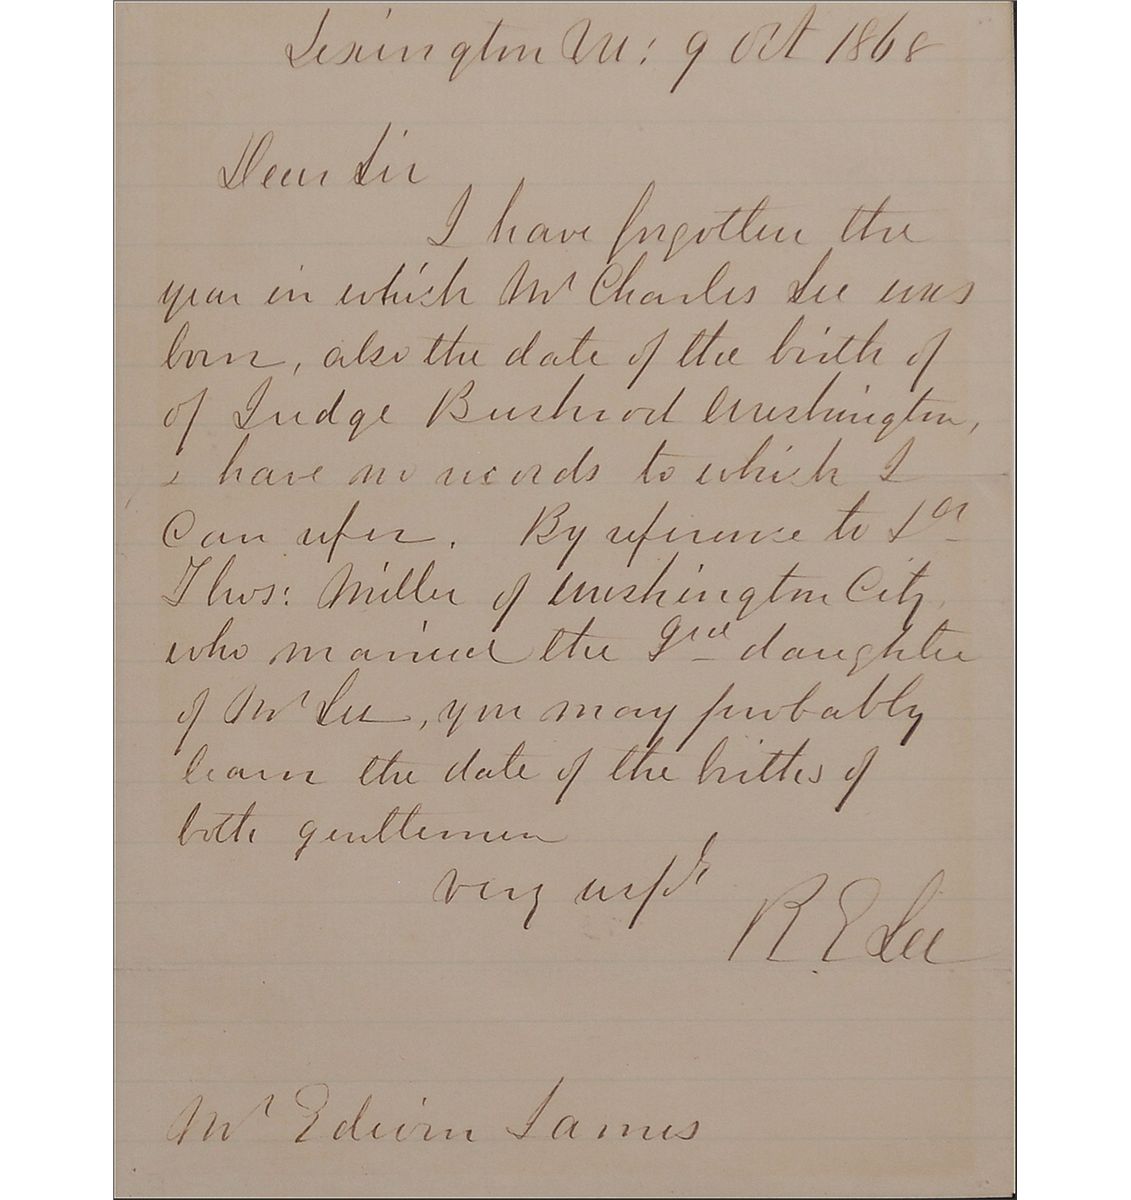 Lexington Va: 9 Oct 1868
Dear Sir
I have forgotten the
year in which Mr Charles Lee was
born, also the date of the birth of
of Judge Bushrod Washington,
& have no records to which I
Can refer. By reference to Dr
Thos: Miller of Washington City
who married the daughter
of Mr Lee, you may probably
learn the date of the births of
both gentlemen
Very
R E Lee
Mr Edwin James